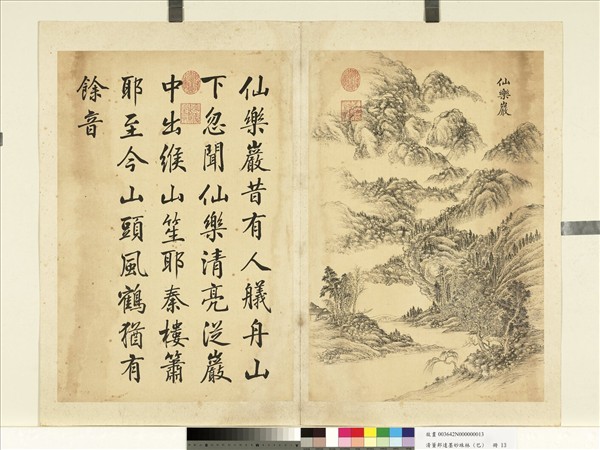 仙樂巖
仙樂巖昔有人艤舟山
下忽聞仙樂清亮從巖
中出緱山笙耶秦樓簫
耶至今山頭風鶴猶有
餘音
故畫 003642N000000013
清董邦達墨妙珠林（巳） 冊 13